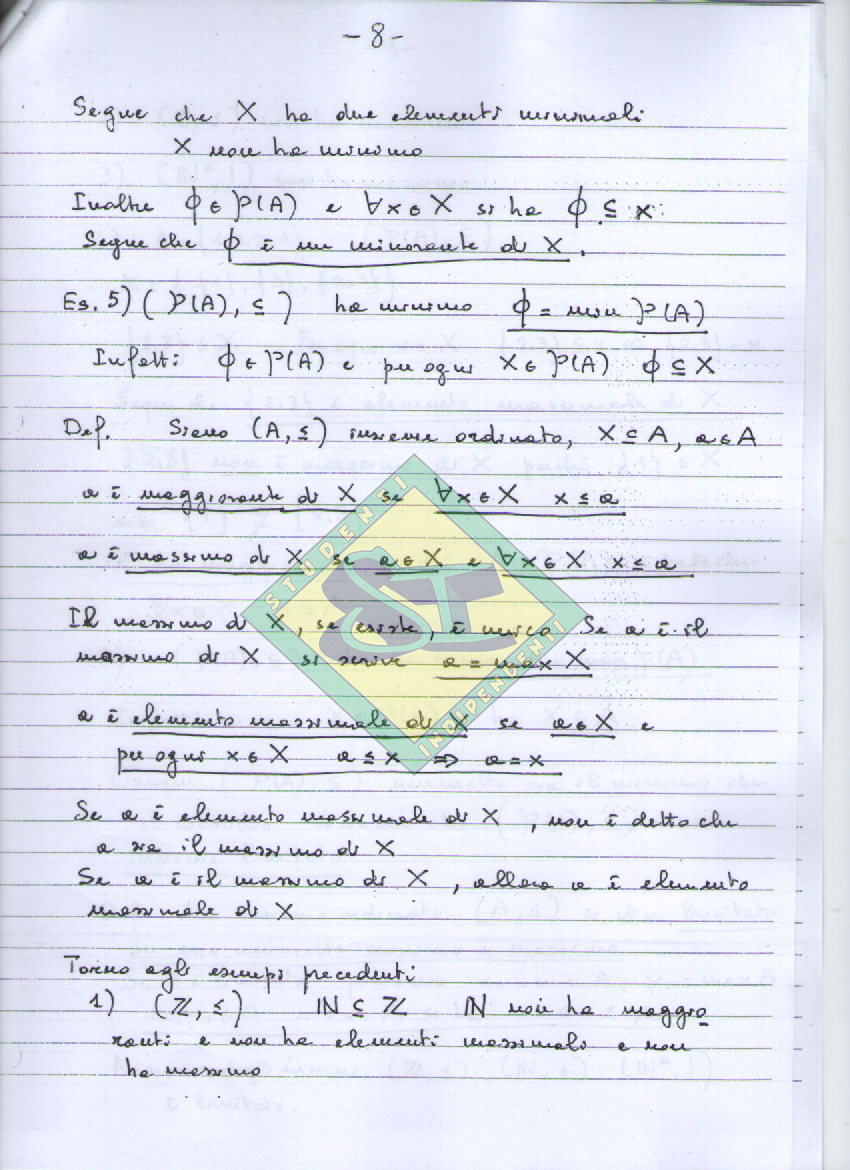 - 8 -
Segue che X ha due elementi minimali
X non ha minimo
Inoltre ϕ ∈ P(A) e ∀x ∈ X si ha ϕ ⊆ x.
Segue che ϕ è un minorante di X.
Es. 5) (P(A), ⊆) ha minimo ϕ = min P(A)
Infatti ϕ ∈ P(A) e per ogni X ∈ P(A) ϕ ⊆ X
Def. Siano (A, ≤) insieme ordinato, X ⊆ A, a ∈ A
a è maggiorante di X se ∀x ∈ X x ≤ a
a è massimo di X se a ∈ X e ∀x ∈ X x ≤ a
Il massimo di X, se esiste, è unico Se a è il
massimo di X si scrive a = max X
a è elemento massimale di X se a ∈ X e
per ogni x ∈ X a ≤ x ⇒ a = x
Se a è elemento massimale di X, non è detto che
a sia il massimo di X
Se a è il massimo di X, allora a è elemento
massimale di X
Torno agli esempi precedenti
1) (ℤ, ≤) ℕ ⊆ ℤ ℕ non ha maggio
ranti e non ha elementi massimali e non
ha massimo
STUDENTI
INDIPENDENTI